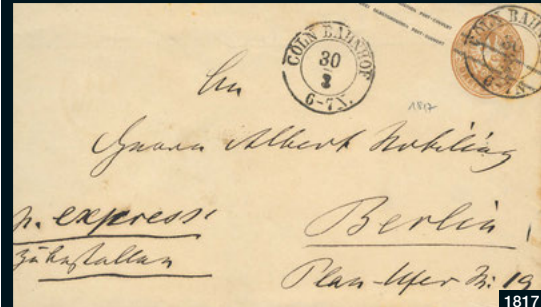 CÖLN BAHNHOF
30
6-7 N.
CÖLN BAHN
1817
An
Herrn Albert Nobiling
p. express
zu bestellen
Berlin
Plan-Ufer N: 19
1817